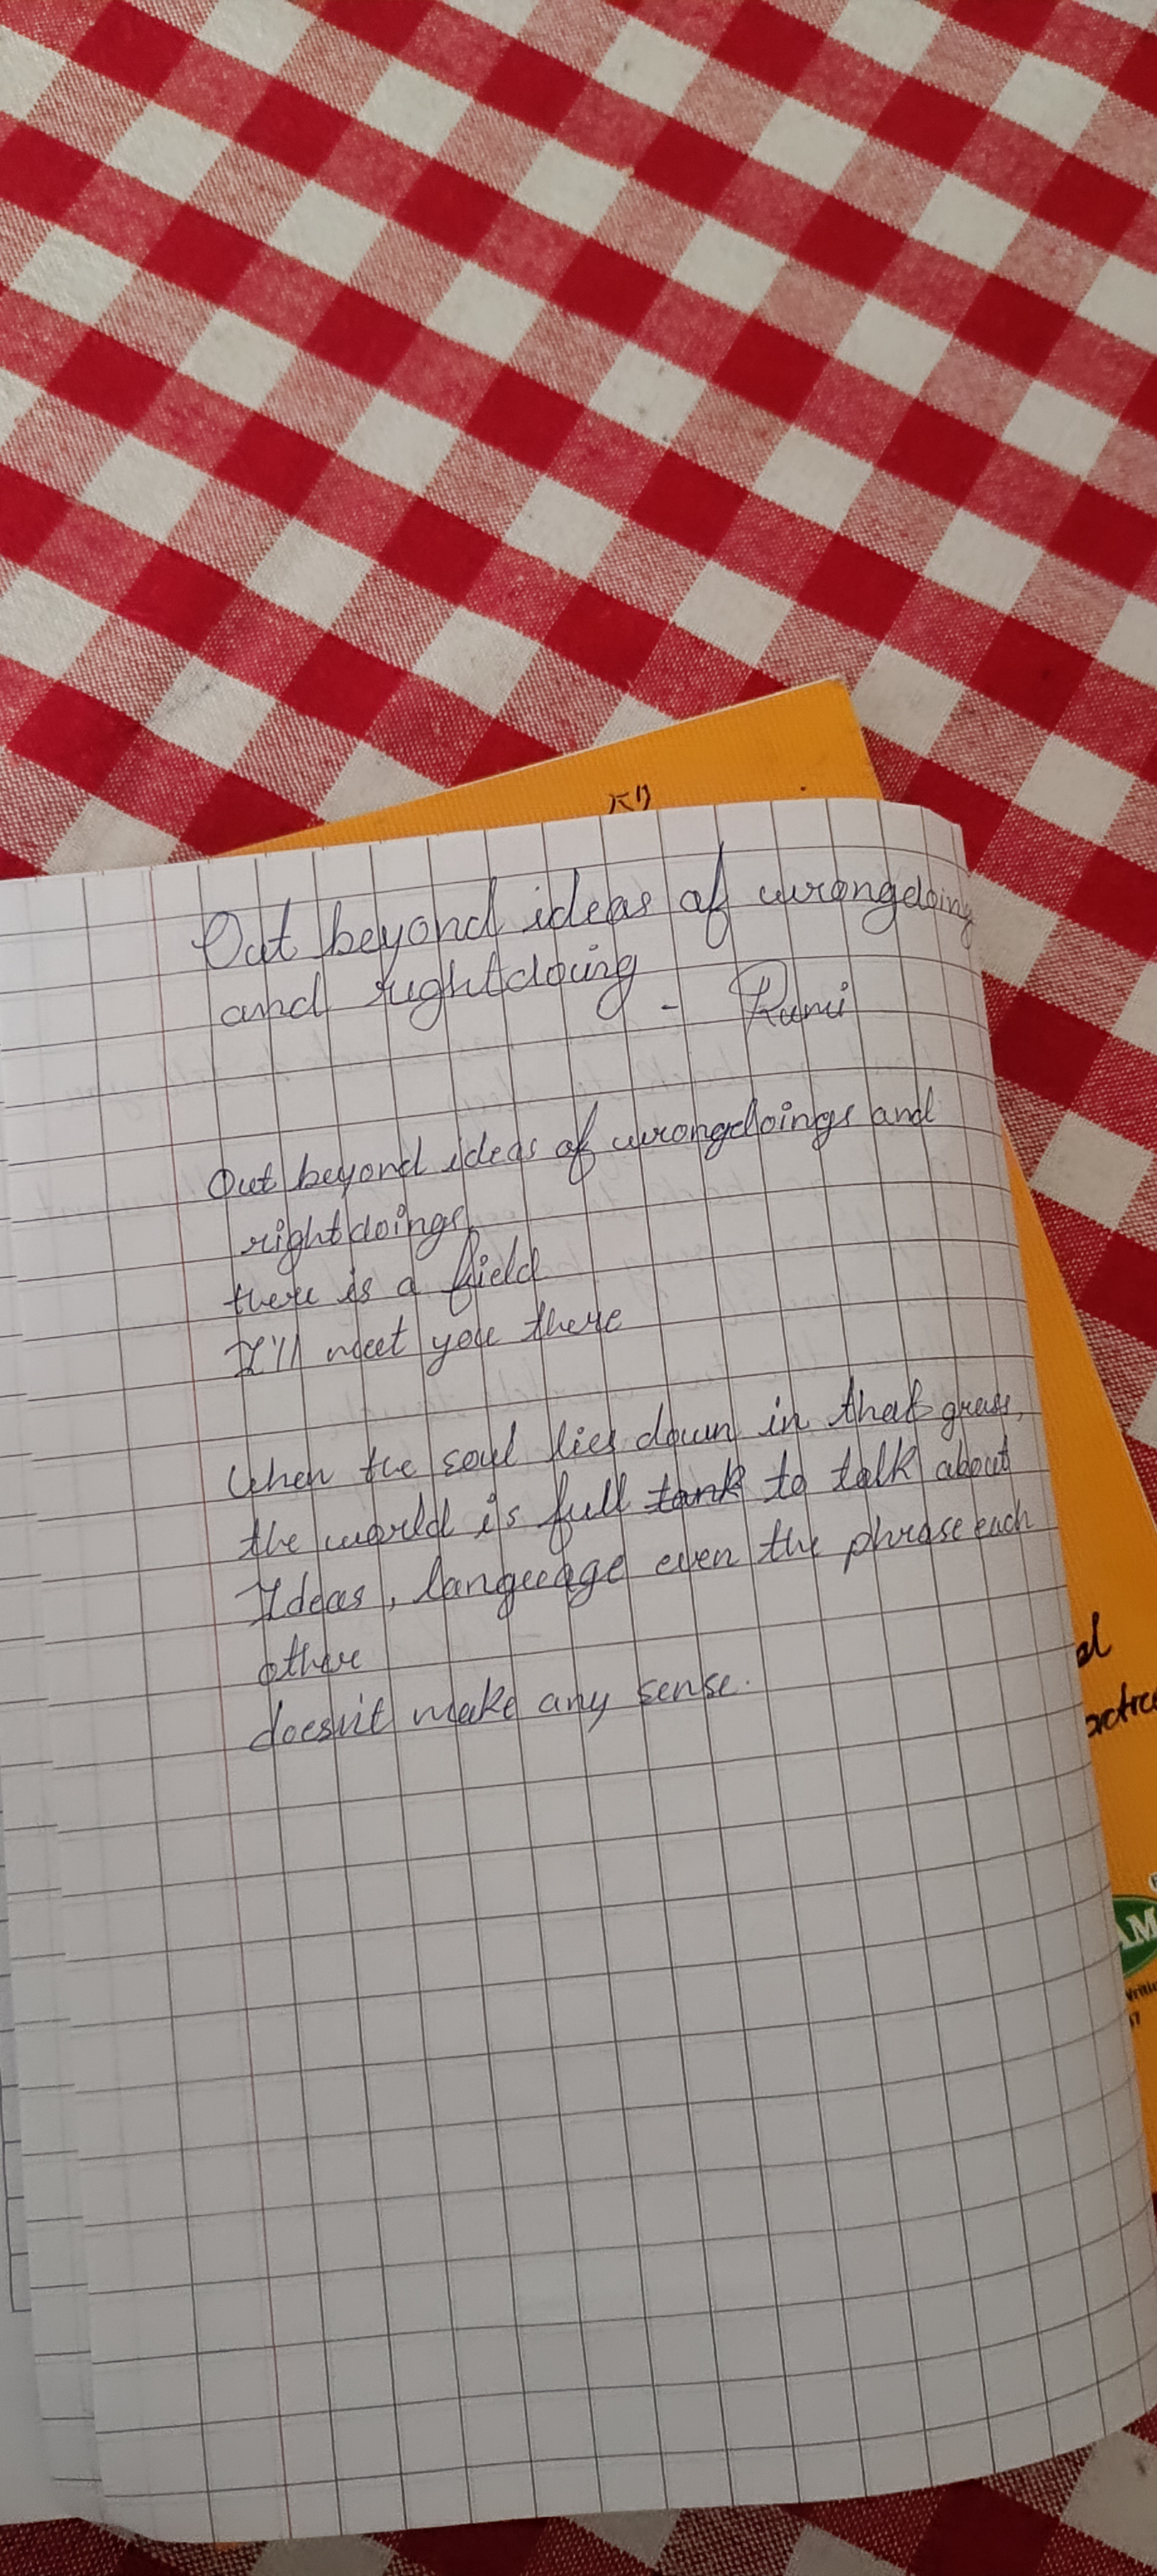 Out beyond ideas of wrongdoing
and rightdoing - Rumi
Out beyond ideas of wrongdoings and
rightdoings,
there is a field
I'll meet you there
When the soul lies down in that grass,
the world is full tank to talk about
Ideas, language even the phrase each
other
doesn't make any sense.
AM